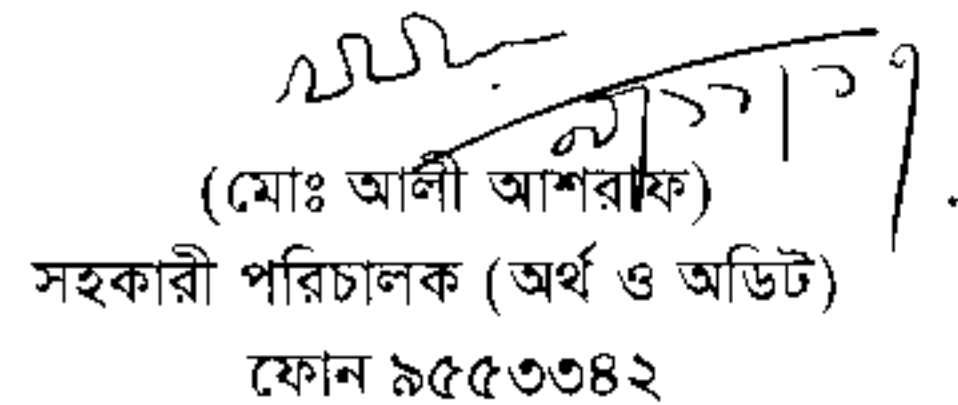 (মোঃ আলী আশরাফ)
সহকারী পরিচালক (অর্থ ও অডিট)
ফোন ৯৫৫৩৩৪২